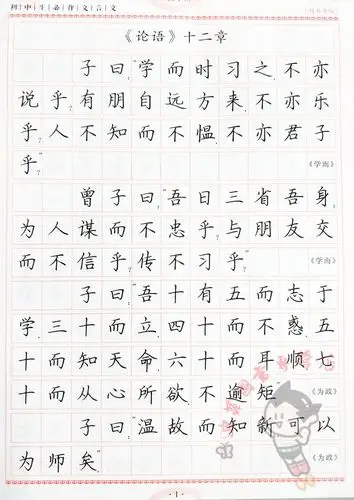 初中生必背文言文
《论语》十二章
子曰:“学而时习之,不亦
说乎?有朋自远方来,不亦乐
乎?人不知而不愠,不亦君子
乎?”《学而》
曾子曰:“吾日三省吾身:
为人谋而不忠乎?与朋友交
而不信乎?传不习乎?”《学而》
子曰:“吾十有五而志于
学,三十而立,四十而不惑,五
十而知天命,六十而耳顺,七
十而从心所欲,不逾矩。”《为政》
子曰:“温故而知新,可以
为师矣。”《为政》
·1·